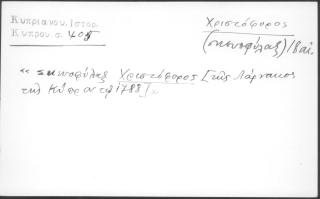 Κυπριανου. Ιστορ.
Κυπρου. σ. 405
Χριστόφορος
(σκευοφύλαξ) 18 αἰ.
«Σκευοφύλαξ Χριστόφορος [τῆς Λάρνακος
τῆς Κύπρου τῷ 1788]»